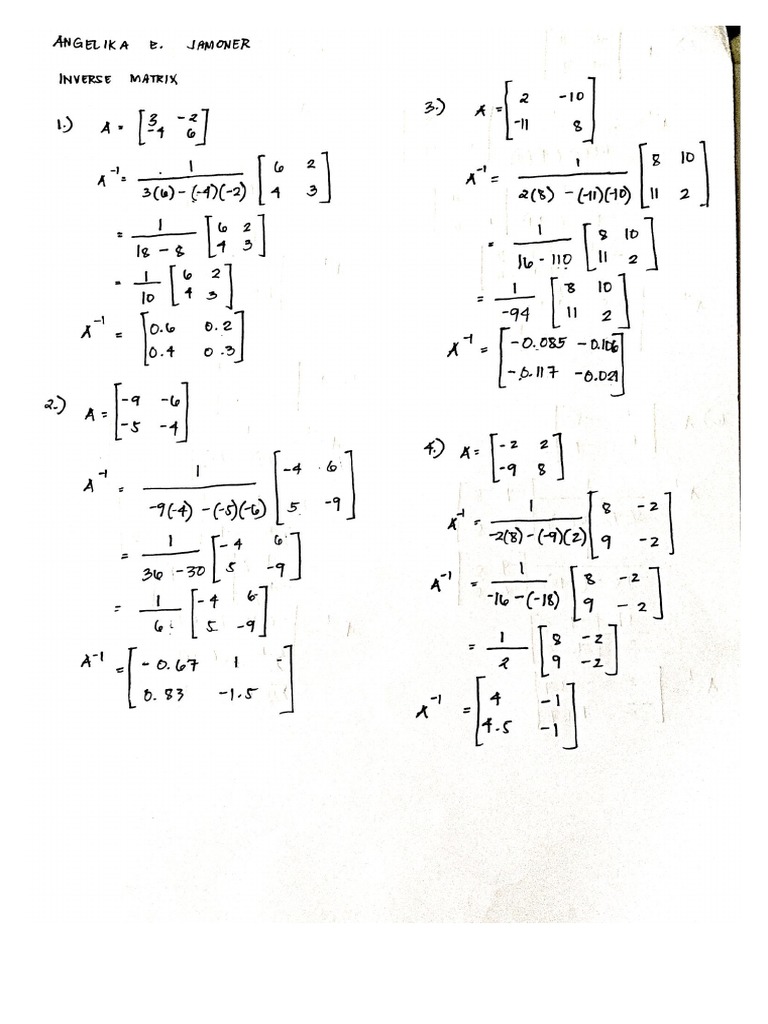 ANGELIKA E. JAMONER
INVERSE MATRIX
1.) A = [3 -2
-4 6]
A⁻¹ = 1 / 3(6) - (-4)(-2) [6 2
4 3]
= 1 / 18 - 8 [6 2
4 3]
= 1 / 10 [6 2
4 3]
A⁻¹ = [0.6 0.2
0.4 0.3]
2.) A = [-9 -6
-5 -4]
A⁻¹ = 1 / -9(-4) - (-5)(-6) [-4 6
5 -9]
= 1 / 36 - 30 [-4 6
5 -9]
= 1 / 6 [-4 6
5 -9]
A⁻¹ = [-0.67 1
0.83 -1.5]
3.) A = [2 -10
-11 8]
A⁻¹ = 1 / 2(8) - (-11)(-10) [8 10
11 2]
= 1 / 16 - 110 [8 10
11 2]
= 1 / -94 [8 10
11 2]
A⁻¹ = [-0.085 -0.106
-0.117 -0.021]
4.) A = [-2 2
-9 8]
A⁻¹ = 1 / -2(8) - (-9)(2) [8 -2
9 -2]
A⁻¹ = 1 / -16 - (-18) [8 -2
9 -2]
= 1 / 2 [8 -2
9 -2]
A⁻¹ = [4 -1
4.5 -1]